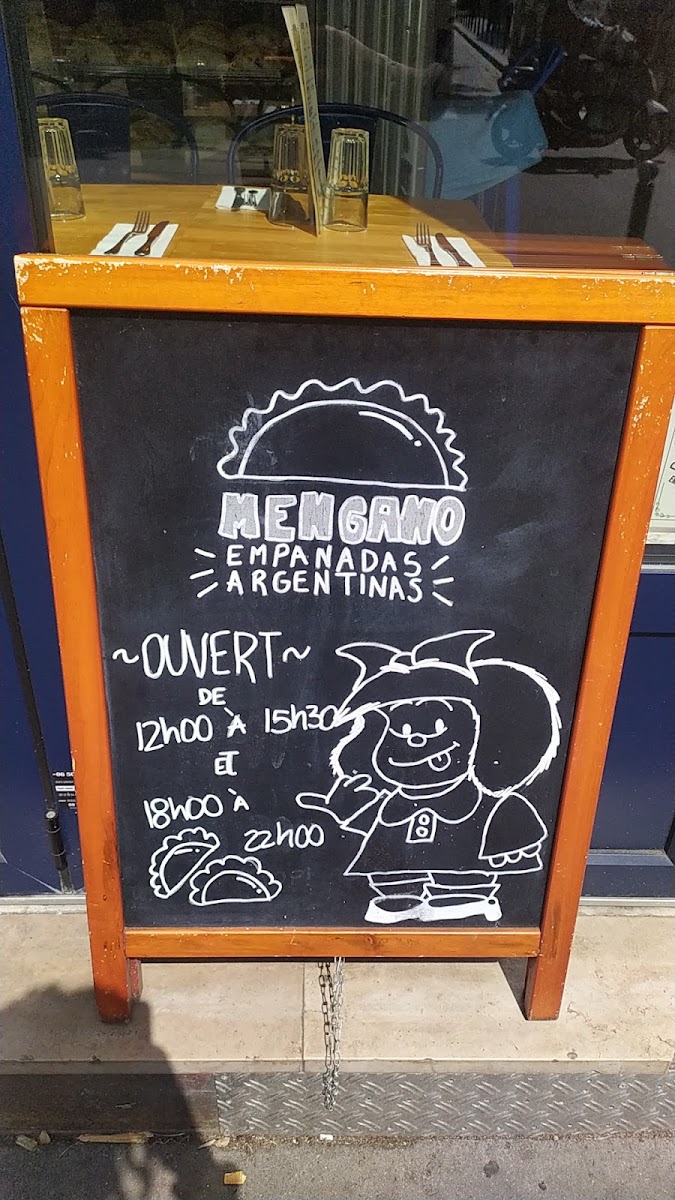 MENGANO
EMPANADAS
ARGENTINAS
~OUVERT~
DE
12h00 À 15h30
ET
18h00 à
22h00